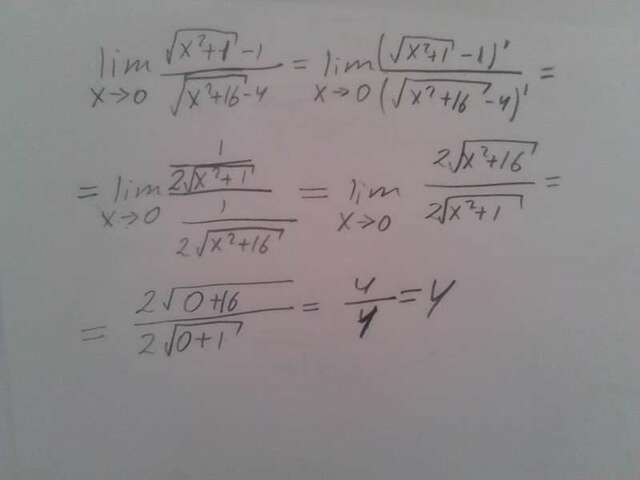 lim x→0 (√(x²+1) - 1)/(√(x²+16) - 4) = lim x→0 (√(x²+1) - 1)'/(√(x²+16) - 4)' =
= lim x→0 (1/(2√(x²+1)))/(1/(2√(x²+16))) = lim x→0 (2√(x²+16))/(2√(x²+1)) =
= (2√(0+16))/(2√(0+1)) = 4/ = 4